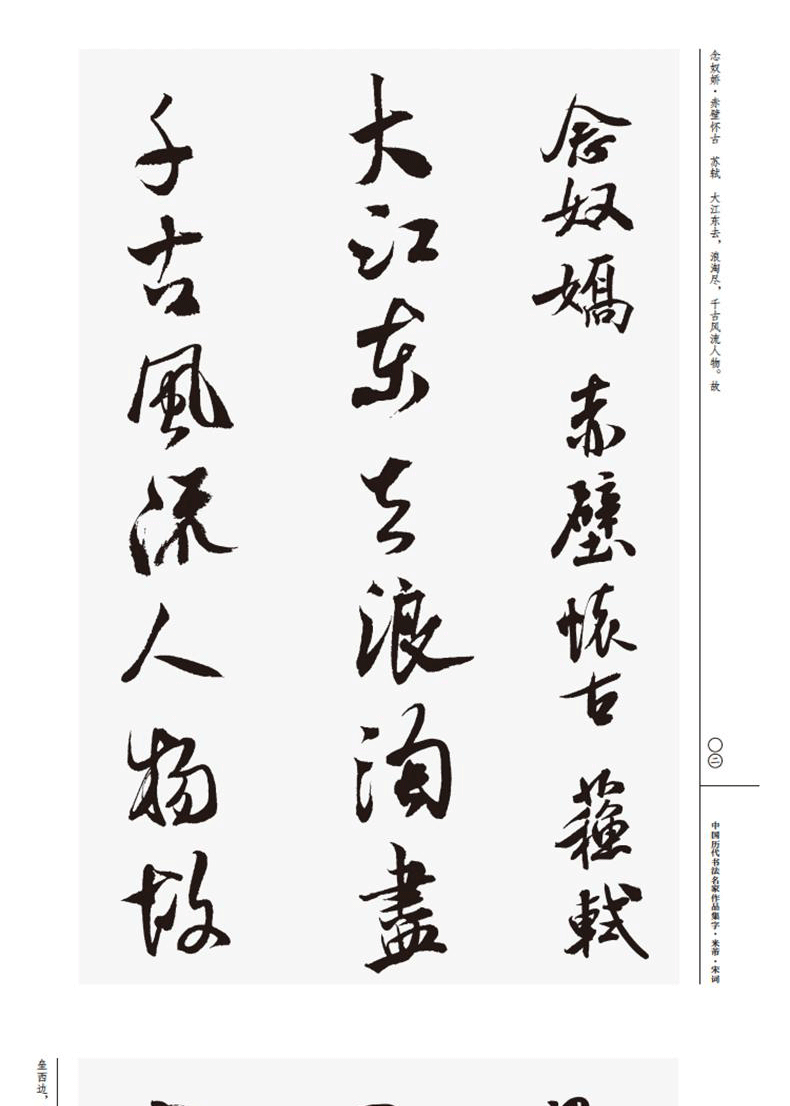 念奴娇·赤壁怀古　苏轼　大江东去，浪淘尽，千古风流人物。故
念奴嬌 赤壁懷古 蘓軾
大江東去浪淘盡
千古風流人物故
〇二
中国历代书法名家作品集字·米芾·宋词
垒西边，